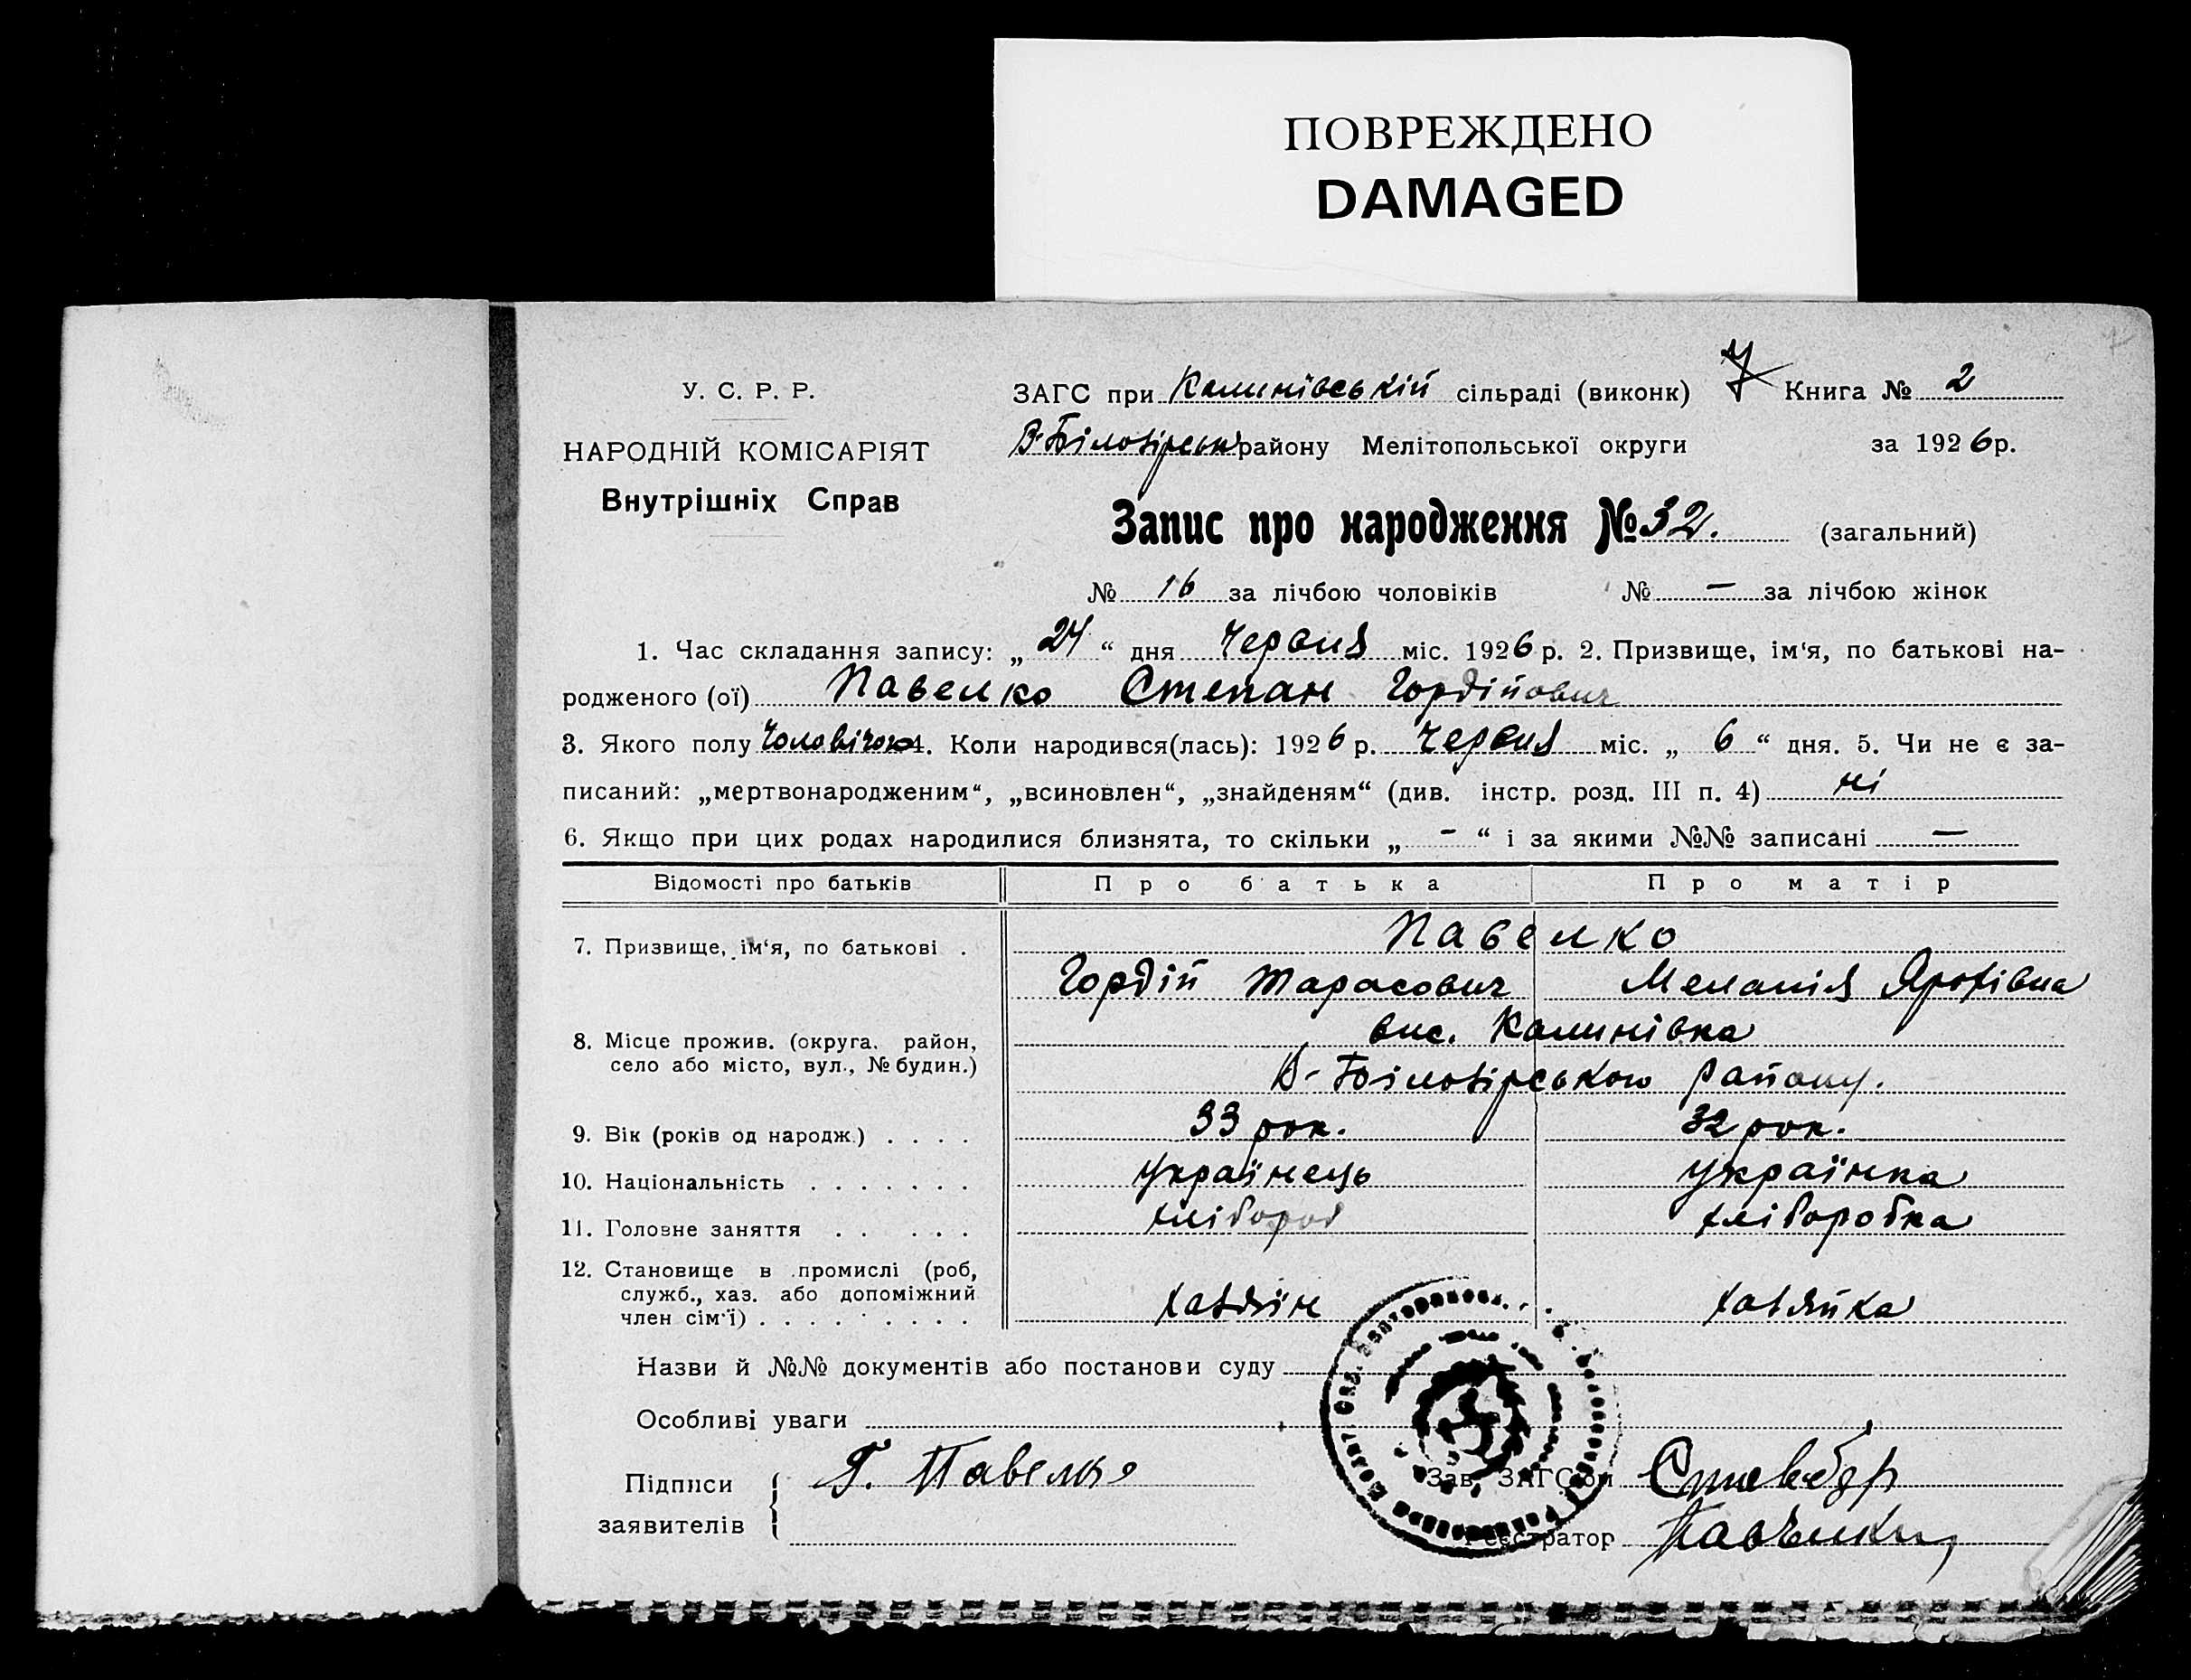 ПОВРЕЖДЕНО
DAMAGED
У. С. Р. Р.
НАРОДНІЙ КОМІСАРІЯТ
Внутрішніх Справ
ЗАГС при Калинівській сільраді (виконк) 7 Книга № 2
В-Білозірськ району Мелітопольської округи за 1926 р.
Запис про народження № 32. (загальний)
№ 16 за лічбою чоловіків № — за лічбою жінок
1. Час складання запису: „ 24 “ дня Червня міс. 1926 р. 2. Призвище, ім‘я, по батькові на-
родженого (ої) Павелко Степан Гордійович
3. Якого полу Чоловічого 4. Коли народився(лась): 1926 р. Червня міс. „ 6 “ дня. 5. Чи не є за-
писаний: „мертвонародженим“, „всиновлен“, „знайденям“ (див. інстр. розд. III п. 4) ні
6. Якщо при цих родах народилися близнята, то скільки „ - “ і за якими №№ записані —
Відомості про батьків Про батька Про матір
7. Призвище, ім‘я, по батькові . Павелко
Гордій Тарасович Меланія
8. Місце прожив. (округа, район, вис. Калинівка
село або місто, вул., № будин.) В-Білозірського району.
9. Вік (років од народж.) . . . . 33 рок. 32 рок.
10. Національність . . . . . . . Українець Українка
11. Головне заняття . . . . . хлібороб хліборобка
12. Становище в промислі (роб,
служб., хаз. або допоміжний
член сім‘ї) . . . . . . . . . хазяїн хазяйка
Назви й №№ документів або постанови суду
Особливі уваги
Підписи Г. Павелко Зав. ЗАГС‘ом
заявителів Реєстратор